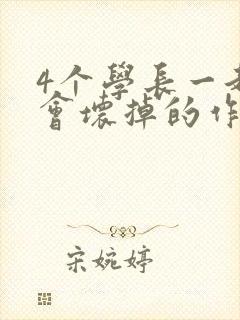 4个學長一
會壞掉的作
宋婉婷